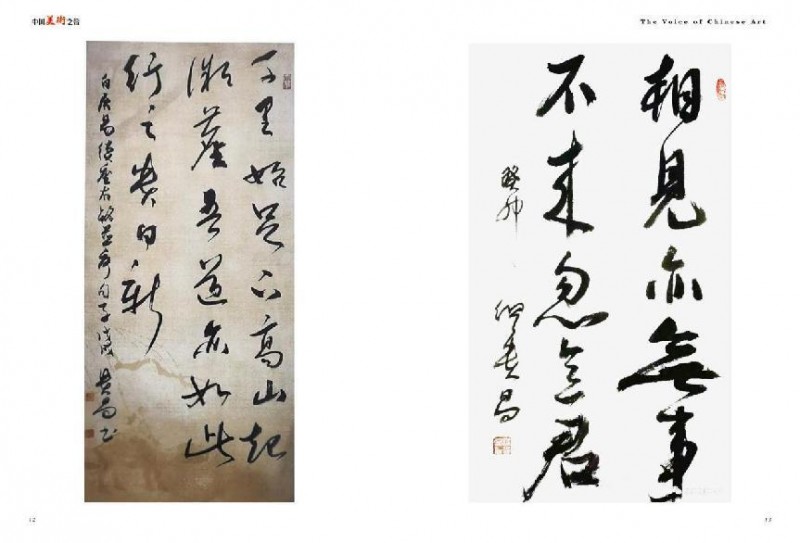 中国美术之音
The Voice of Chinese Art
千里始足下高山起
微尘吾道亦如此
行之贵日新
白居易续座右铭
相见亦无事
不来忽忆君
癸卯
12
13